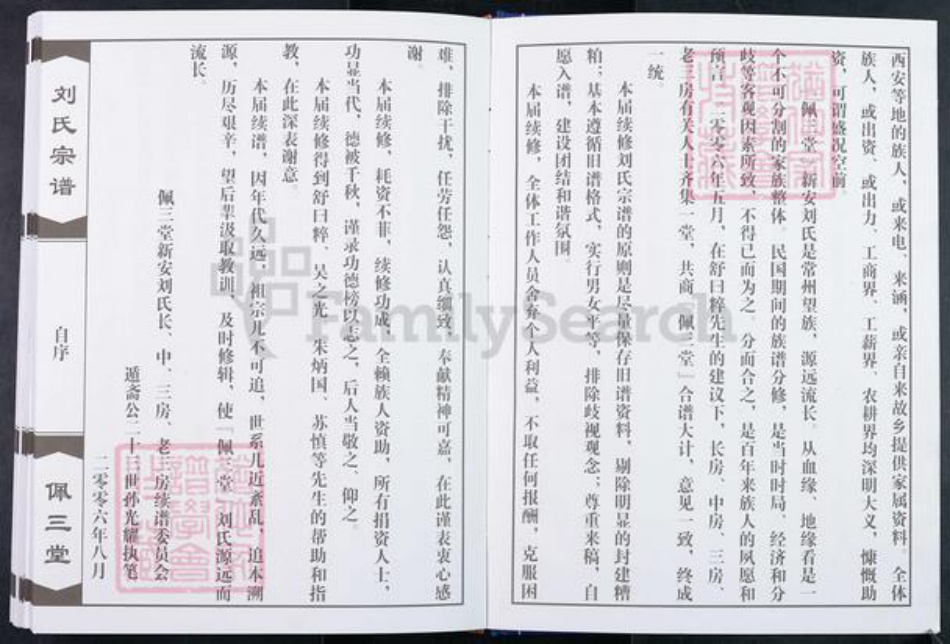 西安等地的族人，或来电、来涵，或亲自来故乡提供家属资料。全体
族人，或出资、或出力、工商界、工薪界、农耕界均深明大义，慷慨助
资，可谓盛况空前。
「佩三堂」新安刘氏是常州望族，源远流长。从血缘、地缘看是一
个不可分割的家族整体。民国期间的族谱分修，是当时时局、经济和分
歧等客观因素所致，不得已而为之。分而合之，是百年来族人的夙愿和
预言。二零零六年五月，在舒曰粹先生的建议下，长房、中房、三房、
老三房有关人士齐集一堂，共商「佩三堂」合谱大计，意见一致，终成
一统。
本届续修刘氏宗谱的原则是尽量保存旧谱资料，剔除明显的封建糟
粕；基本遵循旧谱格式，实行男女平等，排除歧视观念；尊重来稿，自
愿入谱，建设团结和谐氛围。
本届续修，全体工作人员舍弃个人利益，不取任何报酬，克服困
难，排除干扰，任劳任怨，认真细致，奉献精神可嘉，在此谨表衷心感
谢。
本届续修，耗资不菲，续修功成，全赖族人资助，所有捐资人士，
功显当代，德被千秋，谨录功德榜以志之，后人当敬之、仰之。
本届续修得到舒曰粹、吴之光、朱炳国、苏慎等先生的帮助和指
教，在此深表谢意。
本届续谱，因年代久远，祖宗几不可追，世系几近紊乱，追本溯
源，历尽艰辛，望后辈汲取教训，及时修辑，使「佩三堂」刘氏源远而
流长。
佩三堂新安刘氏长、中、三房、老三房续谱委员会
遁斋公二十三世孙光耀执笔
二零零六年八月
刘氏宗谱
自序
佩三堂
FamilySearch